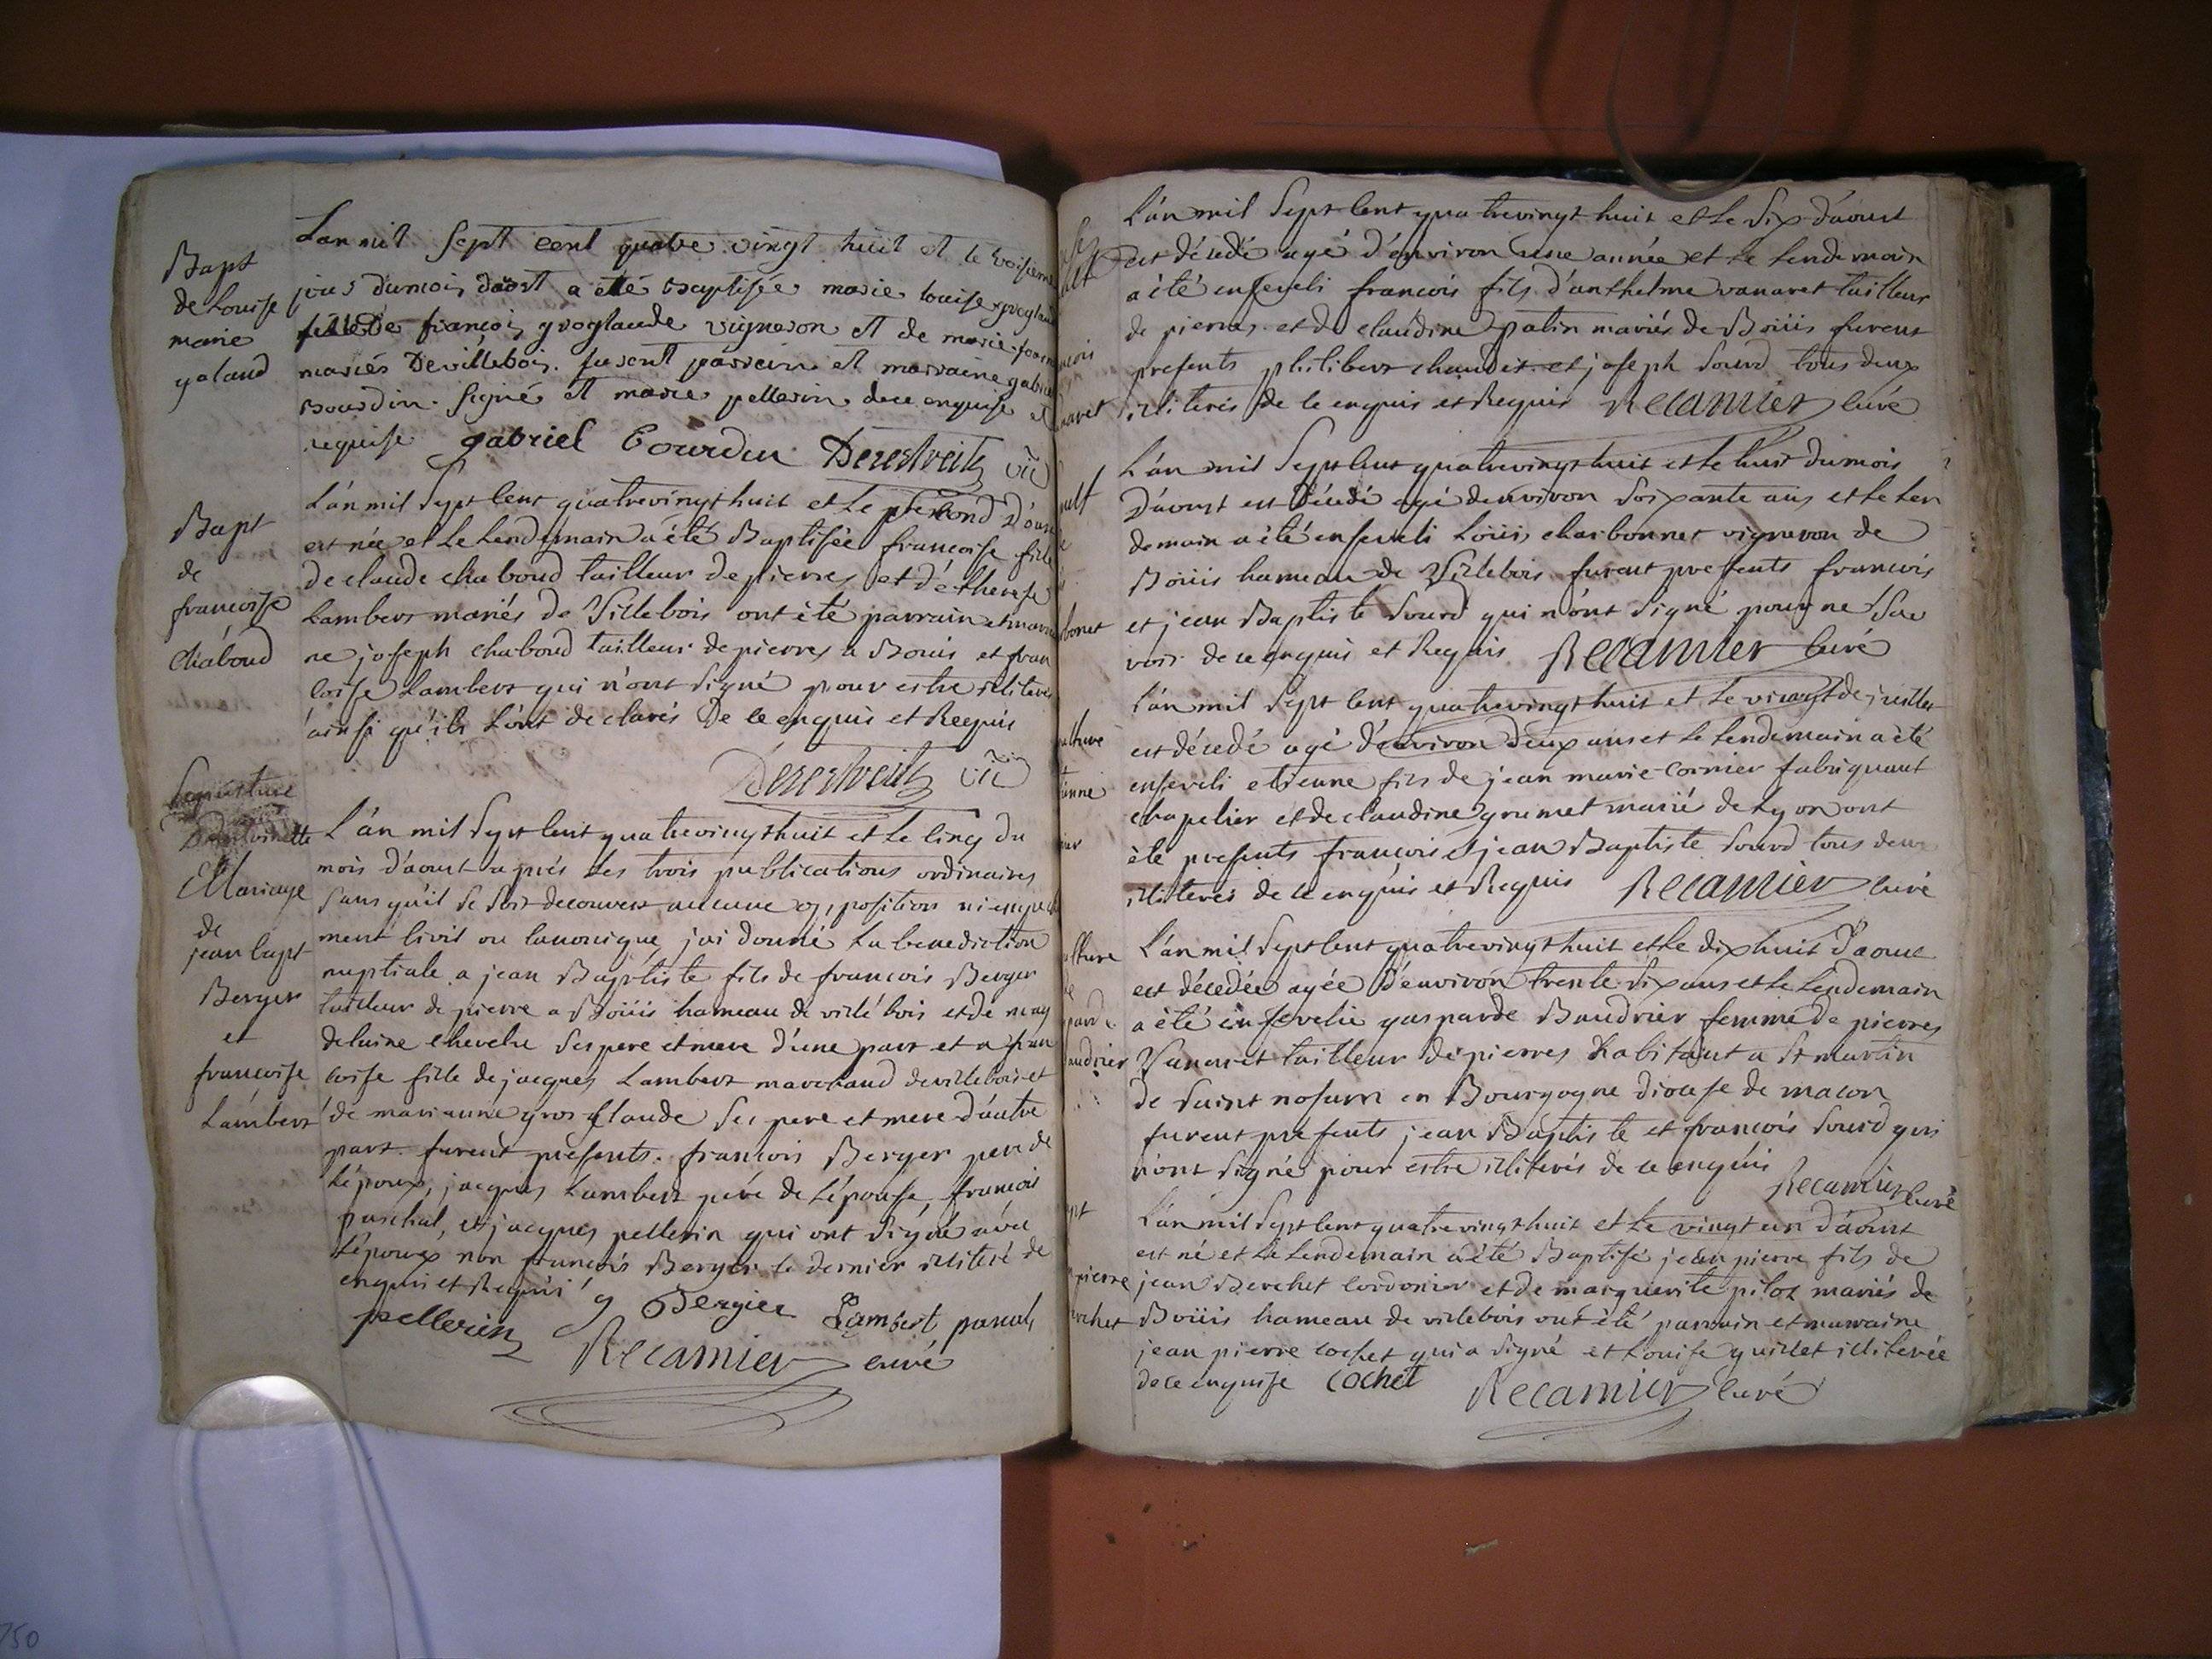 Bapt
de Louise
marie
galaud
L'an mil sept cent quatre vingt huit et le troisieme
jour du mois daost a eté baptisée marie louise
fille de françois groglaude vigneron et de marie
mariés de villebois. furent parrein et marraine gabriel
bourdin signé et marie pellerin de ce enquise et
requise gabriel bourdin Derestreits vic
Bapt
de
francoise
Chaboud
L'án mil Sept Cent quatrevingt huit et le second d'aou
est née et le Lendemain a été Baptisée francoise fille
de claude chaboud tailleur de pierres et de therese
Lambert mariés de Villebois ont été parrain et marai
ne joseph chaboud tailleur de pierres a Boüis et fran
coise Lambert qui n'ont signé pour estre illiteres
ainsi qu'ils L'ont declarés De ce enquis et Requis
Derestreits vic
Sepulture
D'antoinette
Mariage
de
jean bapt
Berger
et
francoise
Lambert
L'án mil Sept Cent quatrevingt huit et le Cinq du
mois d'aoust apprés Les trois publications ordinaires
sans qu'il se soit decouvert aucune opposition ni empeche
ment Civil ou Canonique, jai donné La benediction
nuptiale a jean Baptiste fils de francois Berger
tailleur de pierre a Boüis hameau de villebois et de mag
delaine chevelu Ses pere et mere d'une part et a fran
coise fille de jacques Lambert marchand de villebois et
de marianne gros glaude Ses pere et mere d'autre
part. furent presents. francois Berger pere de
L'époux, jacques Lambert pére de L'épouse, francois
paschal, et jacques pellerin qui ont signé avec
L'époux non francois Berger le dernier illiteré de
enquis et Requis g Bergier Lambert pascal
pellerin Recamier curé
L'án mil Sept Cent quatrevingt huit et le Six d'aoust
est décedé agé d'environ une année et le Lendemain
a été enseveli francois fils d'anthelme vanaret tailleur
de pierres et de claudine patin mariés de Boüis furent
presents philibert chaudet et joseph Sourd tous deux
illiterés de ce enquis et Requis Recamier Curé
L'án mil Sept Cent quatrevingt huit et le huit du mois
D'aoust est décedé agé d'environ Soixante ans et le Len
demain a été enseveli Loüis charbonnet vigneron de
Boüis hameau de Villebois furent presents francois
et jean Baptiste Sourd qui n'ont signé pour ne Sca
voir de ce enquis et Requis Recamier Curé
L'án mil Sept Cent quatrevingt huit et le vingt de juillet
est décedé agé d'environ Deux ans et le Lendemain a été
enseveli etienne fils de jean marie Cornier fabriquant
chapelier et de claudine grumet marié de Lyon ont
été presents francois et jean Baptiste Sourd tous deux
illiterés de ce enquis et Requis Recamier curé
L'án mil Sept Cent quatrevingt huit et le dix huit D'aoust
est décedée agée D'environ trente Six ans et le Lendemain
a été ensevelie gasparde Baudrier femme de pierres
Vanaret tailleur de pierres habitant a St martin
de Saint nosurn en Bourgogne diocese de macon
furent presents jean Baptiste et francois Sourd qui
n'ont signé pour estre illiterés de ce enquis Recamier Curé
L'án mil Sept Cent quatrevingt huit et le vingt un d'aoust
est né et Le Lendemain a été Baptisé jean pierre fils de
jean Berchet Cordonier et de marguerite pilot mariés de
Boüis hameau de villebois ont été parrain et marraine
jean pierre Cochet qui a signé et Louise guillet illiterée
de ce enquise Cochet Recamier Curé